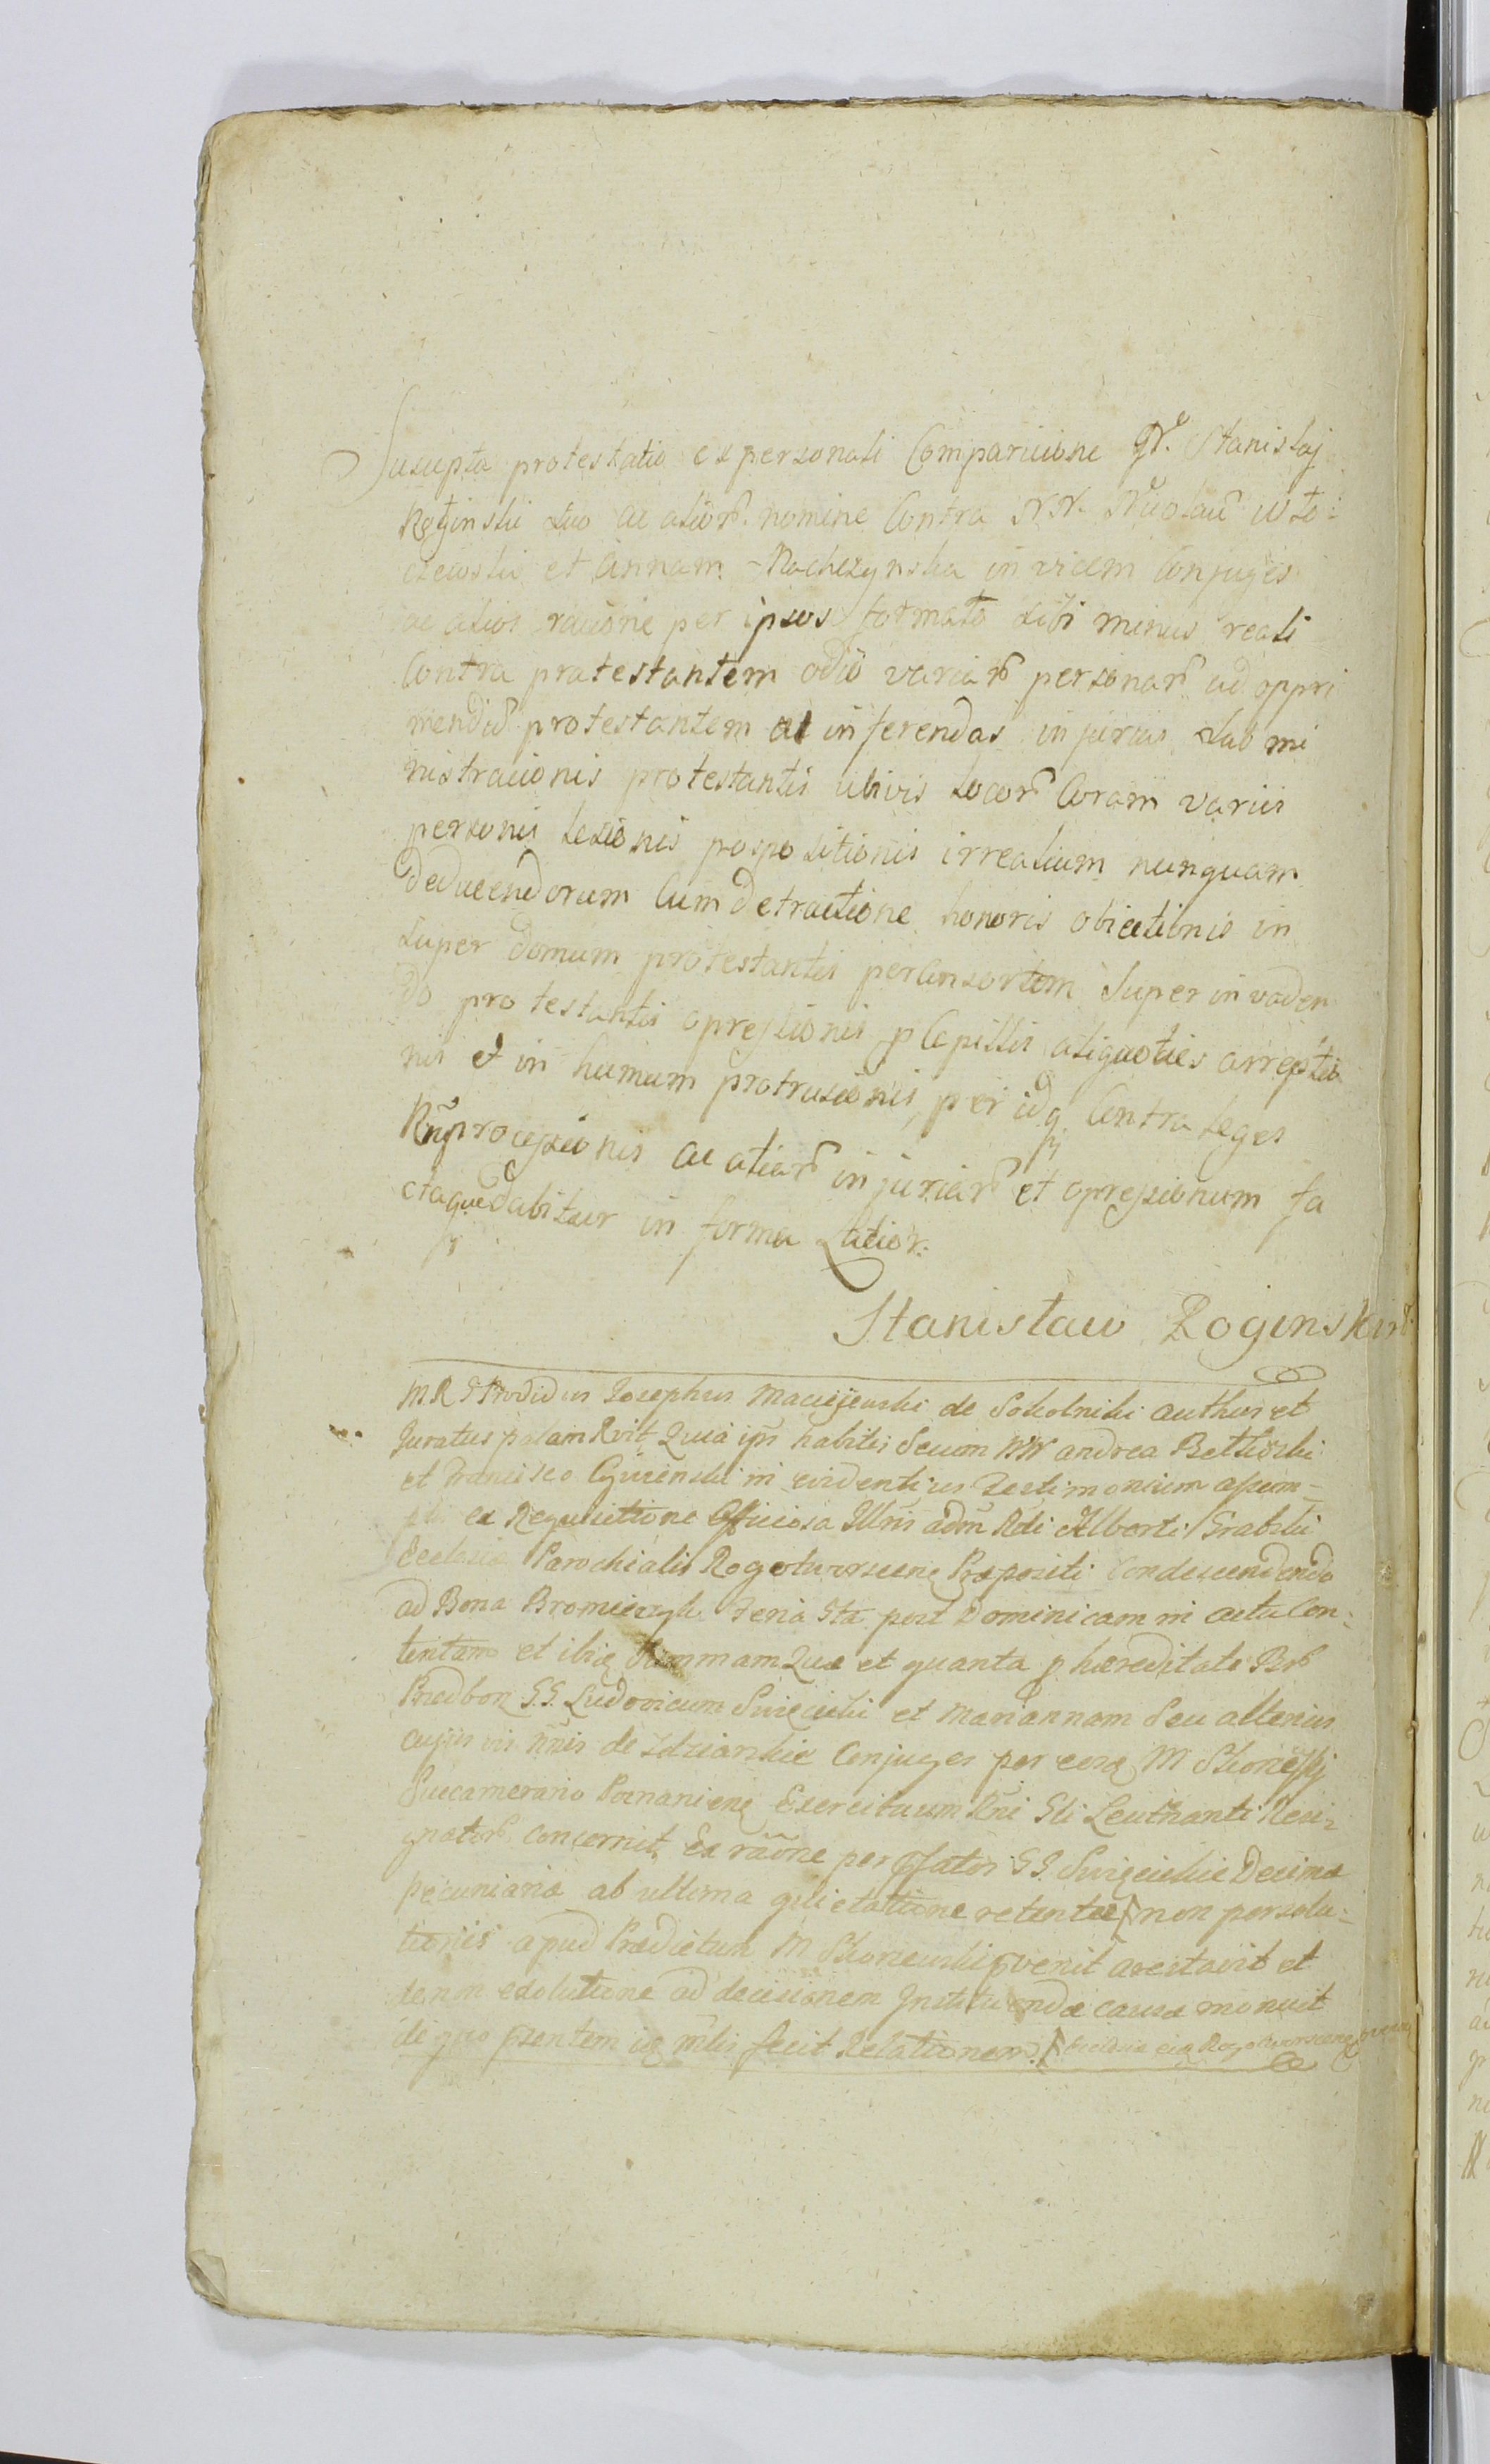 Suscupta protestatio ex personali Comparicione Gr. Stanislaj
Roginski suo ac alior. nomine Contra N.N. Nicolau Wsto:
czewski et Annam Mochczynska in vicem Conjuges
ac alios racione per ipsos formato sibi minus reali
Contra pratestantem odio variar personar ad oppri
mendū protestantem ac inferendas injurias sub mi
nistracionis protestantis ubivis locor Coram variis
personis lesionis pospositionis irrealium nunquam
deducendorum Cum detractione honoris obiectionis in
super domum protestantis per Consortem super invaden
do protestantis opressionis p Capillis aliquoties arreptio
nis et in humum protrusionis, per idq Contra leges
Rni processionis ac aliar injuriar et opressionum fa
ctaque dabitur in forma Latior.
Stanisław Roginski
M.R. G Providus Josephus Maciejewski de Sokolniki authus et
Juratus palam Rvit Quia ipse habitis Secum NN andrea Betliński
et Francisco Cywienski in evidentius Testimonium assum-
ptis ex Requisitione Officiosa Illris adm Rdi Alberti Grabski
Ecclesiæ Parochialis Rogotworscens Præpositi Condescendendo
ad Bona Bromierzyk Feria 5ta post Dominicam in actu Con:
tentam et ibiq Summam Quæ et quanta p hæreditate Br
Prædbon G.G. Ludovicum Swięcicki et Mariannam Seu alterius
cujus vis nnis de Zdziarskie Conjuges per eosq M Skorzeski
Succamerario Poznaniens Exercituum Rni Gli Leuthnanti Resi-
gnator concernit, Ex raōne per pfatos GG. Swięcickie Decimæ
pecuniariæ ab ultima quietatione retentæ non persolu-
tionis apud Prædictum M Skorzewski pvenit arestavit et
de non exolutione ad decisionem Instituendæ causæ monuit
de quo pæsentem iq mlis fecit Relationem. Ecclesiæ eiq Rogotworscens